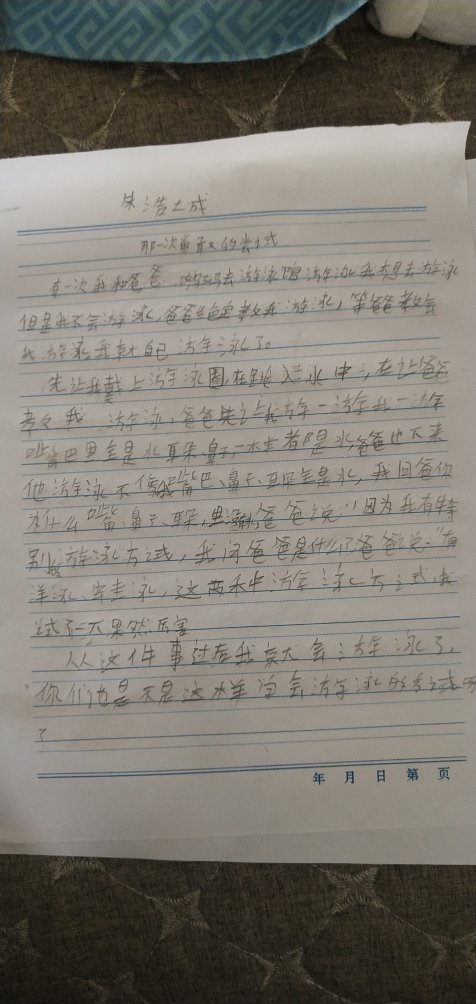 朱浩成
那一次勇敢的尝式
有一次我和爸爸 妈妈去游泳馆游泳我本想去游泳
但是我不会游泳,爸爸 教我游泳,等爸爸教会
我游泳我就自己游泳了。
先让我戴上游泳圈在 入水中,在让爸爸
教我 游泳,爸爸先让我游一游我一游
嘴巴里全是水耳朵、鼻子一本 都是水,爸爸也下来
他游泳不像我嘴巴、鼻子、耳朵全是水,我问爸爸你
为什么嘴、鼻子、耳朵,里没 爸爸说:“因为我有特
别的游泳方式,我问爸爸是什么了爸爸说:“有
洋泳、蛙泳,这两种游泳方式我
试了一下果然厉害
从这件事过后我就会游泳了,
你们也是不是这样学会游泳的方式吗
?
年 月 日 第 页